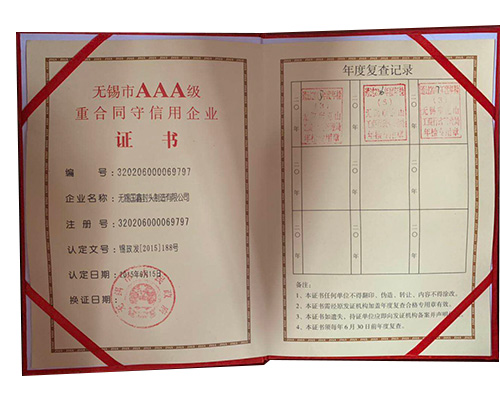 无锡市AAA级
重合同守信用企业
证 书
编 号：320206000069797
企业名称：无锡国鑫封头制造有限公司
注 册 号：320206000069797
认定文号：锡政发[2015]188号
认定日期：2015年6月15日
换证日期：
年度复查记录
二〇 年
二〇 年
二〇 年
二〇 年
二〇 年
二〇 年
二〇 年
二〇 年
二〇 年
备注：
1、本证书任何单位不得翻印、伪造、转让，内容不得涂改。
2、本证书需经原发证机构加盖年度复查合格专用章有效。
3、本证书如遗失，持证单位应即向发证机构备案并声明
4、本证书须每年6月30日前年度复查。